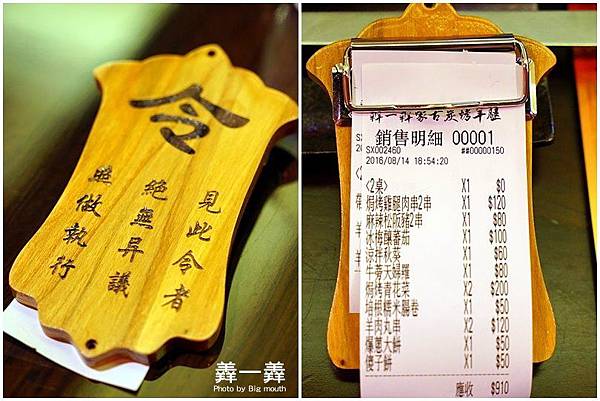 令
見此令者
絕無異議
照做執行
羴一羴
Photo by Big mouth
羴一羴蒙古炭烤羊腿
銷售明細 00001
SX002460 ##00000150
2016/08/14 18:54:20
<2桌> X1 $0
焗烤雞腿肉串2串 X1 $120
麻辣松阪豬2串 X1 $80
冰梅釀蕃茄 X1 $100
涼拌秋葵 X1 $60
牛蒡天婦羅 X1 $80
焗烤青花菜 X2 $200
培根糯米腸卷 X1 $50
羊肉丸串 X2 $120
爆蔥大餅 X1 $50
傻子餅 X1 $50
應收 $910